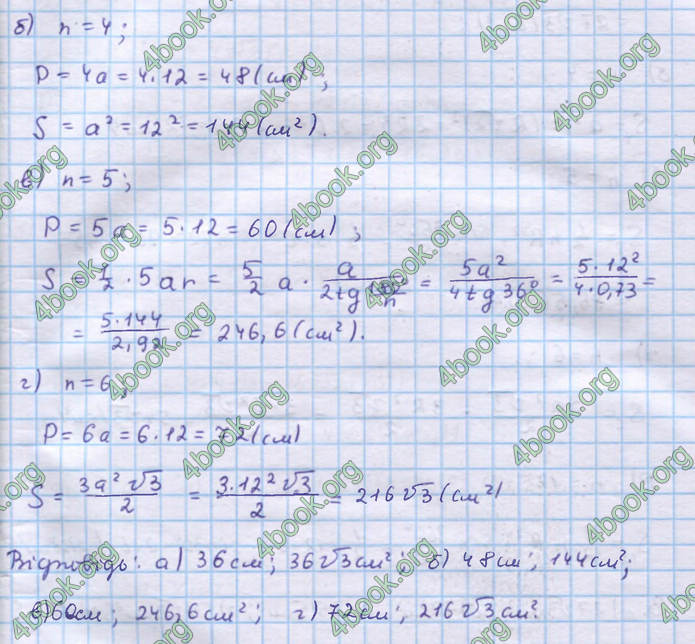 б) n = 4;
P = 4a = 4·12 = 48 (см);
S = a² = 12² = 144 (см²).
в) n = 5;
P = 5a = 5·12 = 60 (см);
S = 1/2 · 5ar = 5/2 a · a/(2tg 180°/n) = 5a²/(4tg 36°) = 5·12²/(4·0,73) =
= 5·144/2,92 = 246,6 (см²).
г) n = 6;
P = 6a = 6·12 = 72 (см)
S = 3a²√3/2 = 3·12²√3/2 = 216√3 (см²)
Відповідь: а) 36 см; 36√3 см²; б) 48 см; 144 см²;
в) 60 см; 246,6 см²; г) 72 см; 216√3 см².
4book.org